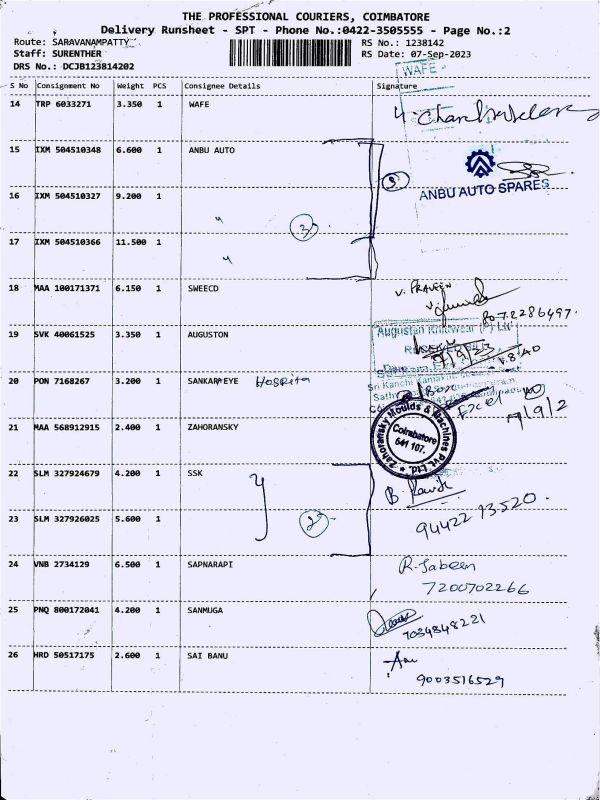 THE PROFESSIONAL COURIERS, COIMBATORE
Delivery Runsheet - SPT - Phone No.:0422-3505555 - Page No.:2
Route: SARAVANAMPATTY
RS No.: 1238142
Staff: SURENTHER
RS Date: 07-Sep-2023
DRS No.: DCJB123814202
WAFE
S No Consignment No Weight PCS Consignee Details Signature
14 TRP 6033271 3.350 1 WAFE
15 IXM 504510348 6.600 1 ANBU AUTO
3
ANBU AUTO SPARES
16 IXM 504510327 9.200 1 "
3
17 IXM 504510366 11.500 1 "
18 MAA 100171371 6.150 1 SWEECD
V. PRAVEEN
19 SVK 40061525 3.350 1 AUGUSTON
Augustan Knitwear (P) Ltd
7/9/23
20 PON 7168267 3.200 1 SANKAR EYE
Sri Kanchi Kamak
7/9/2
21 MAA 568912915 2.400 1 ZAHORANSKY
Zahoransky Moulds & Machines Pvt. Ltd.
Coimbatore
641 107.
22 SLM 327924679 4.200 1 SSK
94422 13520.
23 SLM 327926025 5.600 1
2
24 VNB 2734129 6.500 1 SAPNARAPI
R. Jabeen
7200702266
25 PNQ 800172041 4.200 1 SANMUGA
7034848221
26 HRD 50517175 2.600 1 SAI BANU
9003516529